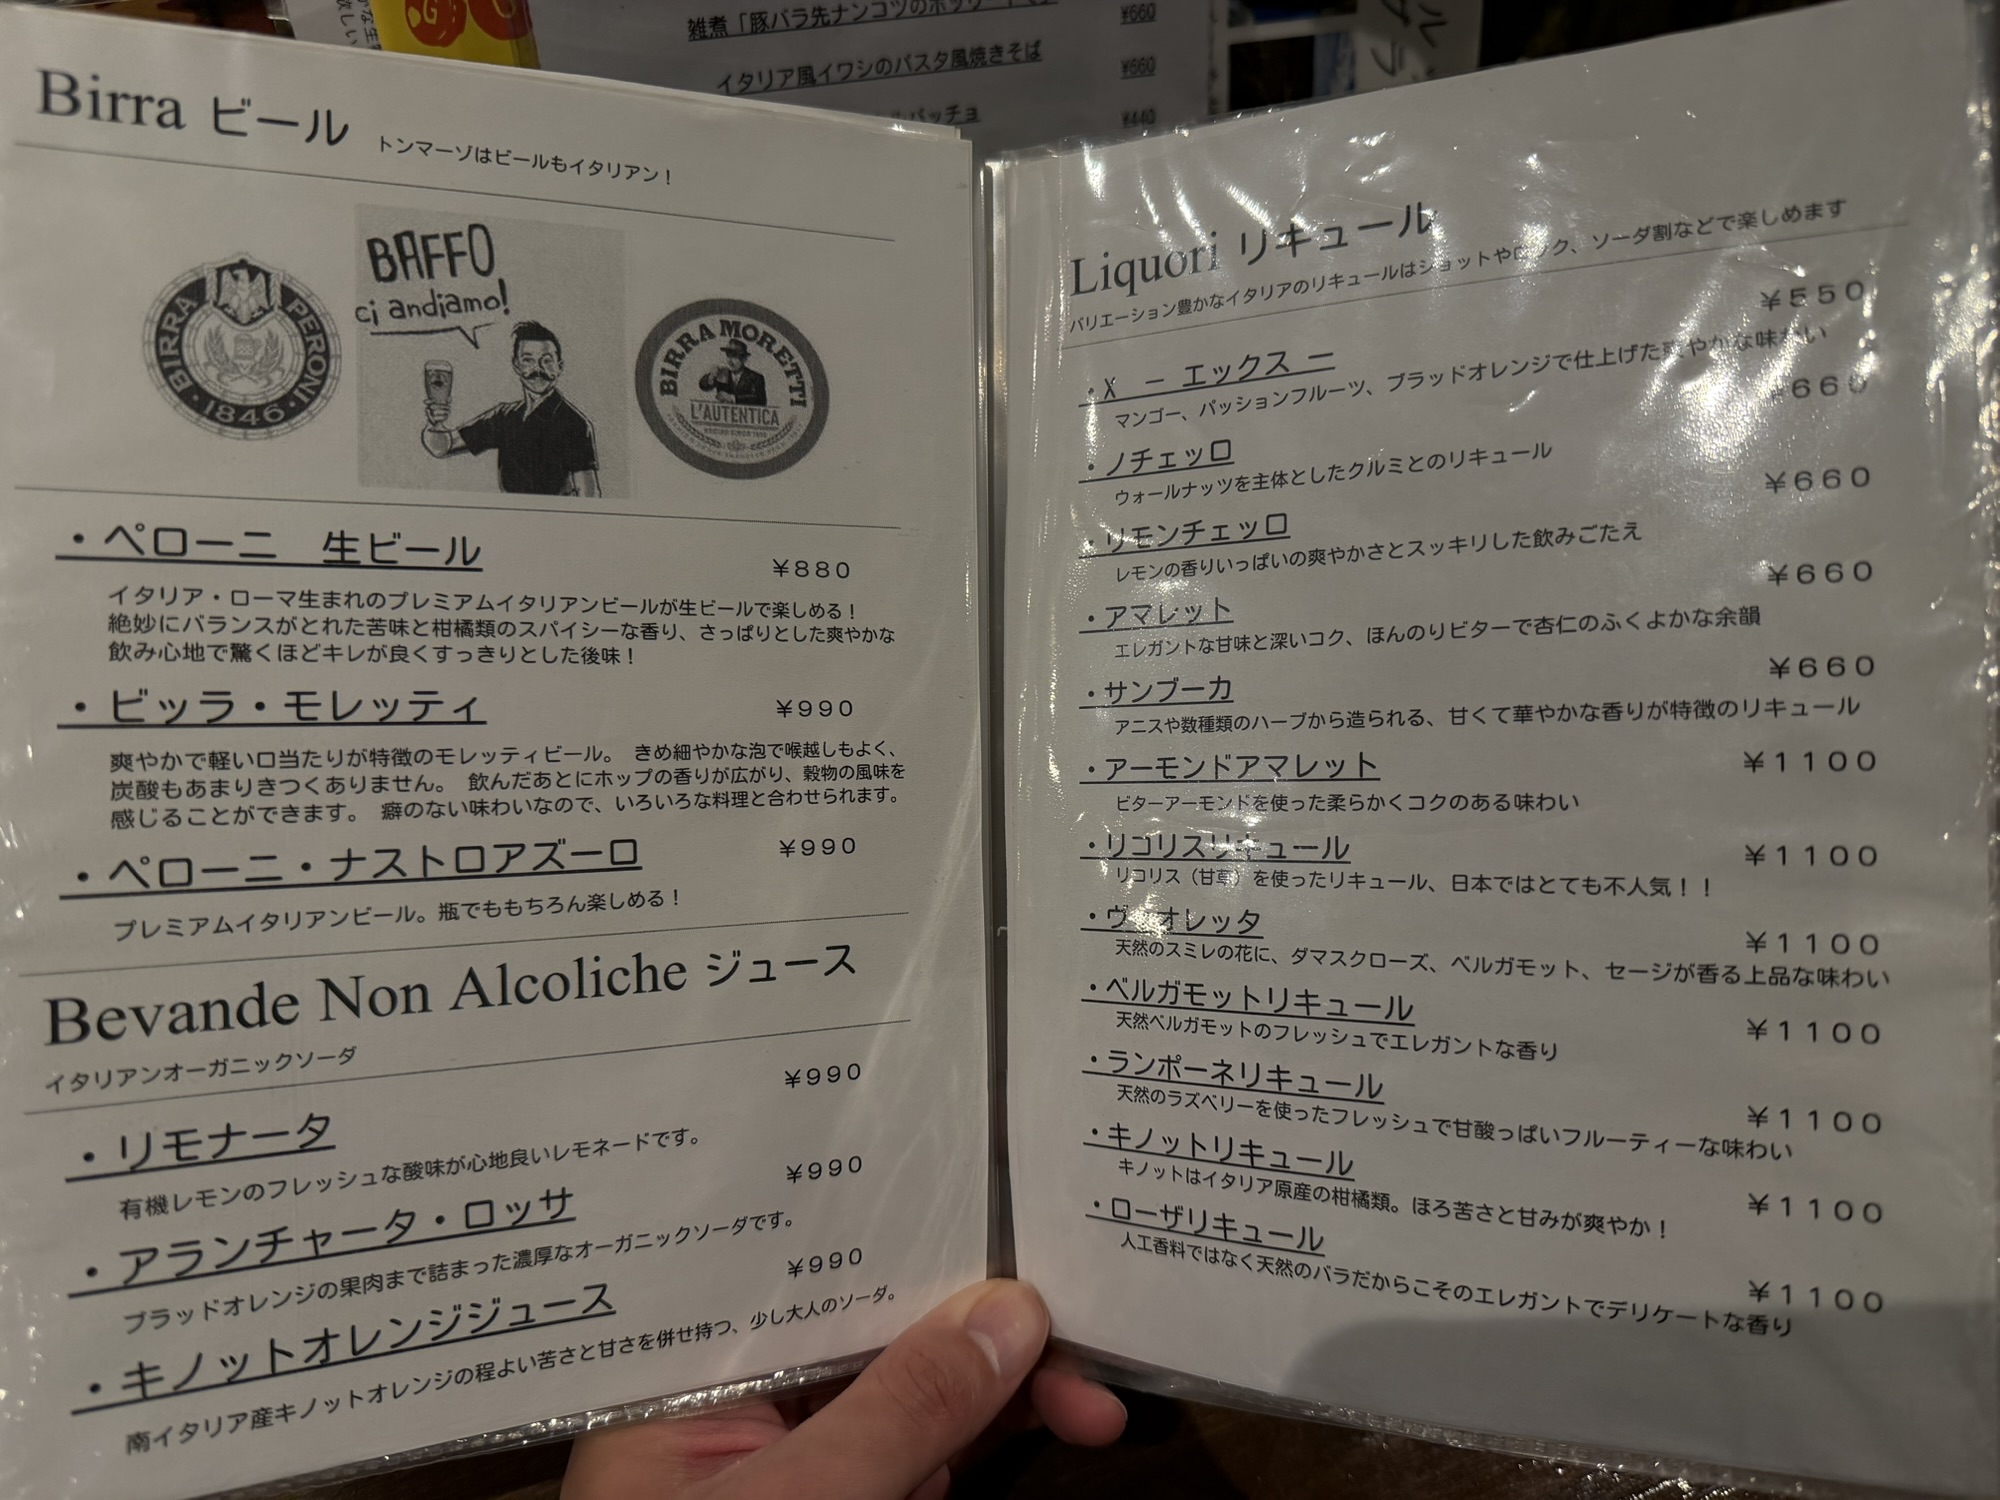 雑煮「豚バラ先ナンコツの
¥660
イタリア風イワシのパスタ風焼きそば
¥660
パッチョ
¥440
Birra ビール
トンマーゾはビールもイタリアン！
BIRRA PERONI
・1846・
BAFFO
ci andiamo!
BIRRA MORETTI
L'AUTENTICA
・ペローニ　生ビール
¥880
イタリア・ローマ生まれのプレミアムイタリアンビールが生ビールで楽しめる！
絶妙にバランスがとれた苦味と柑橘類のスパイシーな香り、さっぱりとした爽やかな
飲み心地で驚くほどキレが良くすっきりとした後味！
・ビッラ・モレッティ
¥990
爽やかで軽い口当たりが特徴のモレッティビール。 きめ細やかな泡で喉越しもよく、
炭酸もあまりきつくありません。 飲んだあとにホップの香りが広がり、穀物の風味を
感じることができます。 癖のない味わいなので、いろいろな料理と合わせられます。
・ペローニ・ナストロアズーロ
¥990
プレミアムイタリアンビール。瓶でももちろん楽しめる！
Bevande Non Alcoliche ジュース
イタリアンオーガニックソーダ
¥990
・リモナータ
有機レモンのフレッシュな酸味が心地良いレモネードです。
¥990
・アランチャータ・ロッサ
ブラッドオレンジの果肉まで詰まった濃厚なオーガニックソーダです。
¥990
・キノットオレンジジュース
南イタリア産キノットオレンジの程よい苦さと甘さを併せ持つ、少し大人のソーダ。
Liquori リキュール
バリエーション豊かなイタリアのリキュールはショットやロック、ソーダ割などで楽しめます
¥550
・X　－ エックス －
マンゴー、パッションフルーツ、ブラッドオレンジで仕上げた爽やかな味わい
¥660
・ノチェッロ
ウォールナッツを主体としたクルミとのリキュール
¥660
・リモンチェッロ
レモンの香りいっぱいの爽やかさとスッキリした飲みごたえ
¥660
・アマレット
エレガントな甘味と深いコク、ほんのりビターで杏仁のふくよかな余韻
¥660
・サンブーカ
アニスや数種類のハーブから造られる、甘くて華やかな香りが特徴のリキュール
¥1100
・アーモンドアマレット
ビターアーモンドを使った柔らかくコクのある味わい
¥1100
・リコリスリキュール
リコリス（甘草）を使ったリキュール、日本ではとても不人気！！
¥1100
・ヴィオレッタ
天然のスミレの花に、ダマスクローズ、ベルガモット、セージが香る上品な味わい
¥1100
・ベルガモットリキュール
天然ベルガモットのフレッシュでエレガントな香り
¥1100
・ランポーネリキュール
天然のラズベリーを使ったフレッシュで甘酸っぱいフルーティーな味わい
¥1100
・キノットリキュール
キノットはイタリア原産の柑橘類。ほろ苦さと甘みが爽やか！
¥1100
・ローザリキュール
人工香料ではなく天然のバラだからこそのエレガントでデリケートな香り